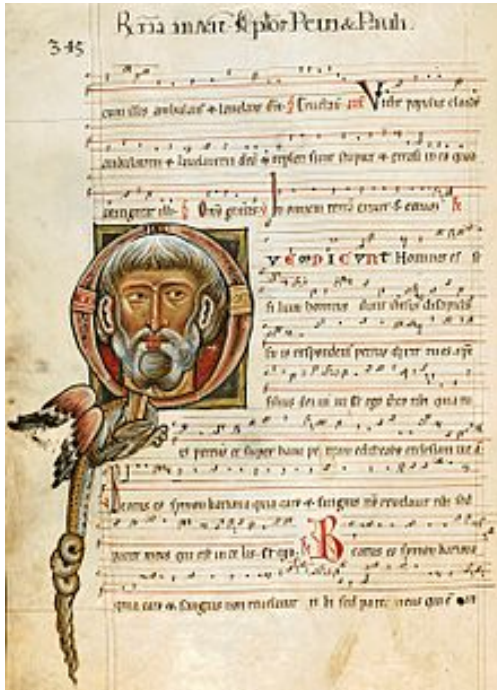 in nat Petri & Pauli.
345
cum illis ambulans & laudans Vidit populus claudū
ambulantem & laudantem deū & repleti sunt stupore & extasi in eo quod
contigerat illi. In omnem terrā exivit
VEM DICVNT Homines
filium hominis dixit ihesus discipulis
suis respondens petrus dixit tu es xpc
filius dei vivi Et ego dico tibi quia tu
es petrus et super hanc petram edificabo ecclesiam
Beatus es symon bariona quia caro & sanguis revelavit tibi sed
pater meus qui est in celis. Et ego. Beatus es symon bariona
quia caro & sanguis non revelavit tibi sed pater meus qui